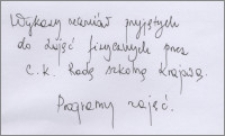 Wykazy uczniów przyjętych
do zajęć fizycznych przez
C. K. Radę szkolną krajową.
Programy zajęć.